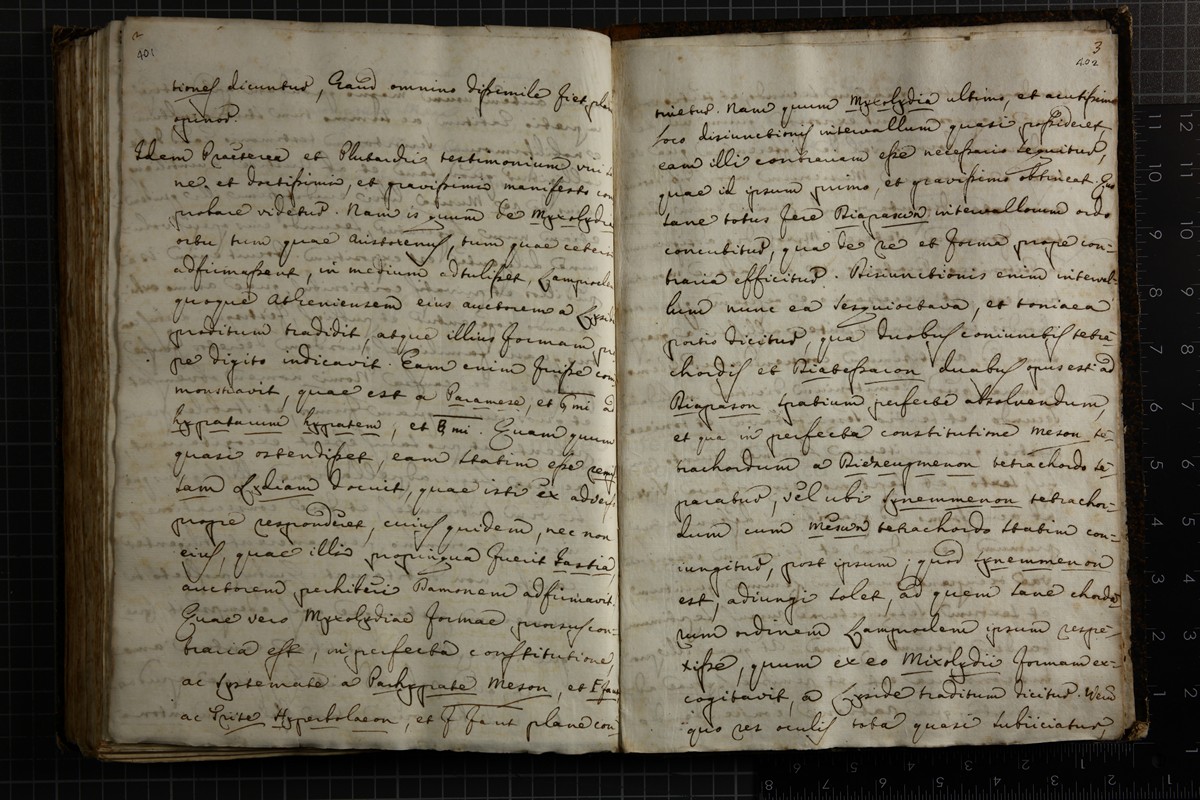 2
401
tiones dicuntur, Haud omnino dissimile fiet pla
Idem Praeterea et Plutarchi testimonium viri
ne et doctissimi, et gravissimi manifesto com
probare videtur. Nam is quum de Myxolydii
ortu tum quae Aristoxenus, tum quae ceteri
adfirmassent, in medium adtulisset, Lamproclem
quoque Atheniensem eius auctorem a Lyside
proditum tradidit, atque illius formam pro
pe digito indicavit. Eam enim fuisse com
monstravit, quae est a Paramese, et ♮ mi ad
Hypatarum Hypatem, et ♮ mi. Quam quum
quasi ostendisset, eam statim esse
tam Lydiam docuit, quae isti ex adver
propre responderet, cuius quidem, nec non
eius, quae illi propinqua fuerit Iastia,
auctorem perhiberi Damonem adfirmavit.
Quae vero Myxolydiae formae prorsus con-
traria est, in perfecta constitutione,
ac systemate a Parhypate Meson, et F faut
ac Trite Hyperbolaeon, et f faut plane con
3
402
tinetur. Nam quum Myxolydia ultimo, et acutissimo
loco disiunctionis intervallum quasi possideret,
eam illi contrariam esse necessario sequitur,
quae id ipsum primo, et gravissimo obtineat. Quo
sane totus fere Diapason intervallorum ordo
concubitur, qua de re et forma prope con-
traria efficitur. Disiunctionis enim interval-
lum nunc ea sesquioctava, et toniaea
portio dicitur, qua duobus coniunctis tetra
chordis et Diatessaron duabus opus est ad
Diapason spatium perfecte absolvendum,
et qua in perfecta constitutione meson te-
trachordum a Diezeugmenon tetrachordo se-
paratur, vel ubi Synemmenon tetrachor-
dum cum meson tetrachordo statim con-
iungitur, post ipsum, quod Synemmenon
est, adiungi solet, ad quem sane chorda
rum ordinem Lamproclem ipsum respe-
xisse, quum ex eo Mixolydii formam ex-
cogitavit, a Lyside traditum dicitur. Verum
quo res oculis tota quasi subiiciatur,